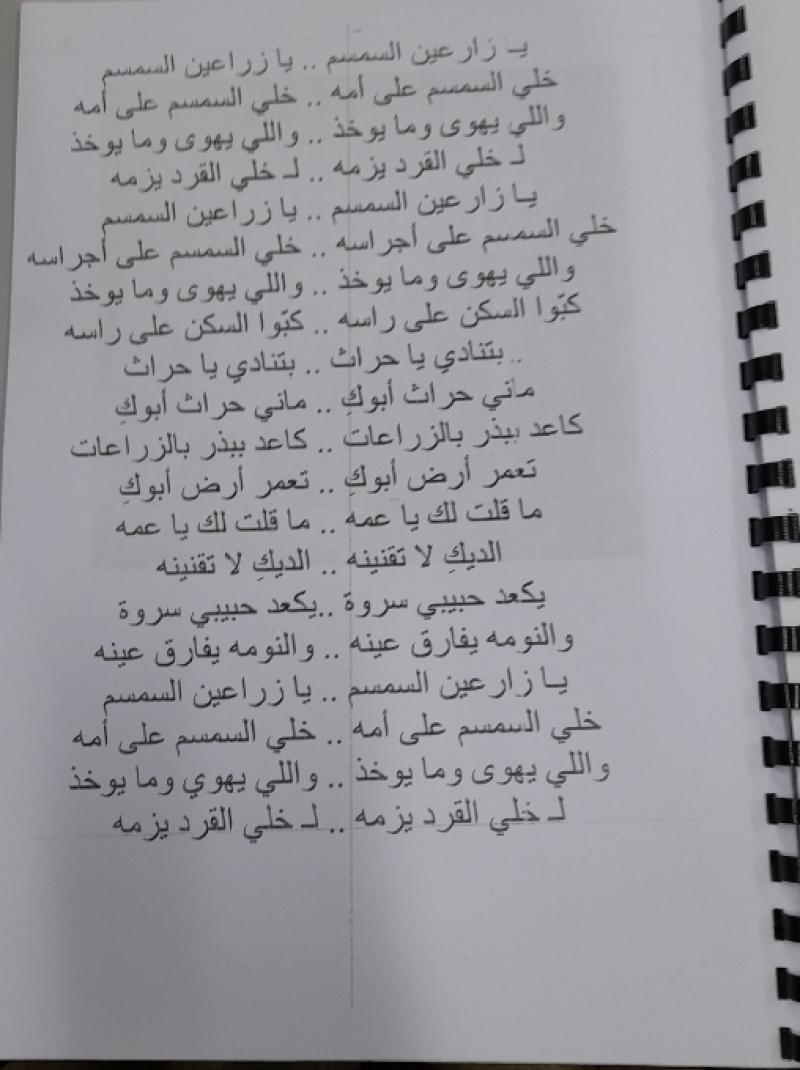 يـا زارعين السمسم .. يا زراعين السمسم
خلي السمسم على أمه .. خلي السمسم على أمه
واللي يهوى وما يوخذ .. واللي يهوى وما يوخذ
لـ خلي القرد يزمه .. لـ خلي القرد يزمه
يـا زارعين السمسم .. يا زراعين السمسم
خلي السمسم على أجراسه .. خلي السمسم على أجراسه
واللي يهوى وما يوخذ .. واللي يهوى وما يوخذ
كبّوا السكن على راسه .. كبّوا السكن على راسه
.. بتنادي يا حراث .. بتنادي يا حراث
ماني حراث أبوكِ .. ماني حراث أبوكِ
كاعد ببذر بالزراعات .. كاعد ببذر بالزراعات
تعمر أرض أبوكِ .. تعمر أرض أبوكِ
ما قلت لك يا عمه .. ما قلت لك يا عمه
الديكِ لا تقنينه .. الديكِ لا تقنينه
يكعد حبيبي سروة ..يكعد حبيبي سروة
والنومه يفارق عينه .. والنومه يفارق عينه
يـا زارعين السمسم .. يا زراعين السمسم
خلي السمسم على أمه .. خلي السمسم على أمه
واللي يهوى وما يوخذ .. واللي يهوي وما يوخذ
لـ خلي القرد يزمه .. لـ خلي القرد يزمه